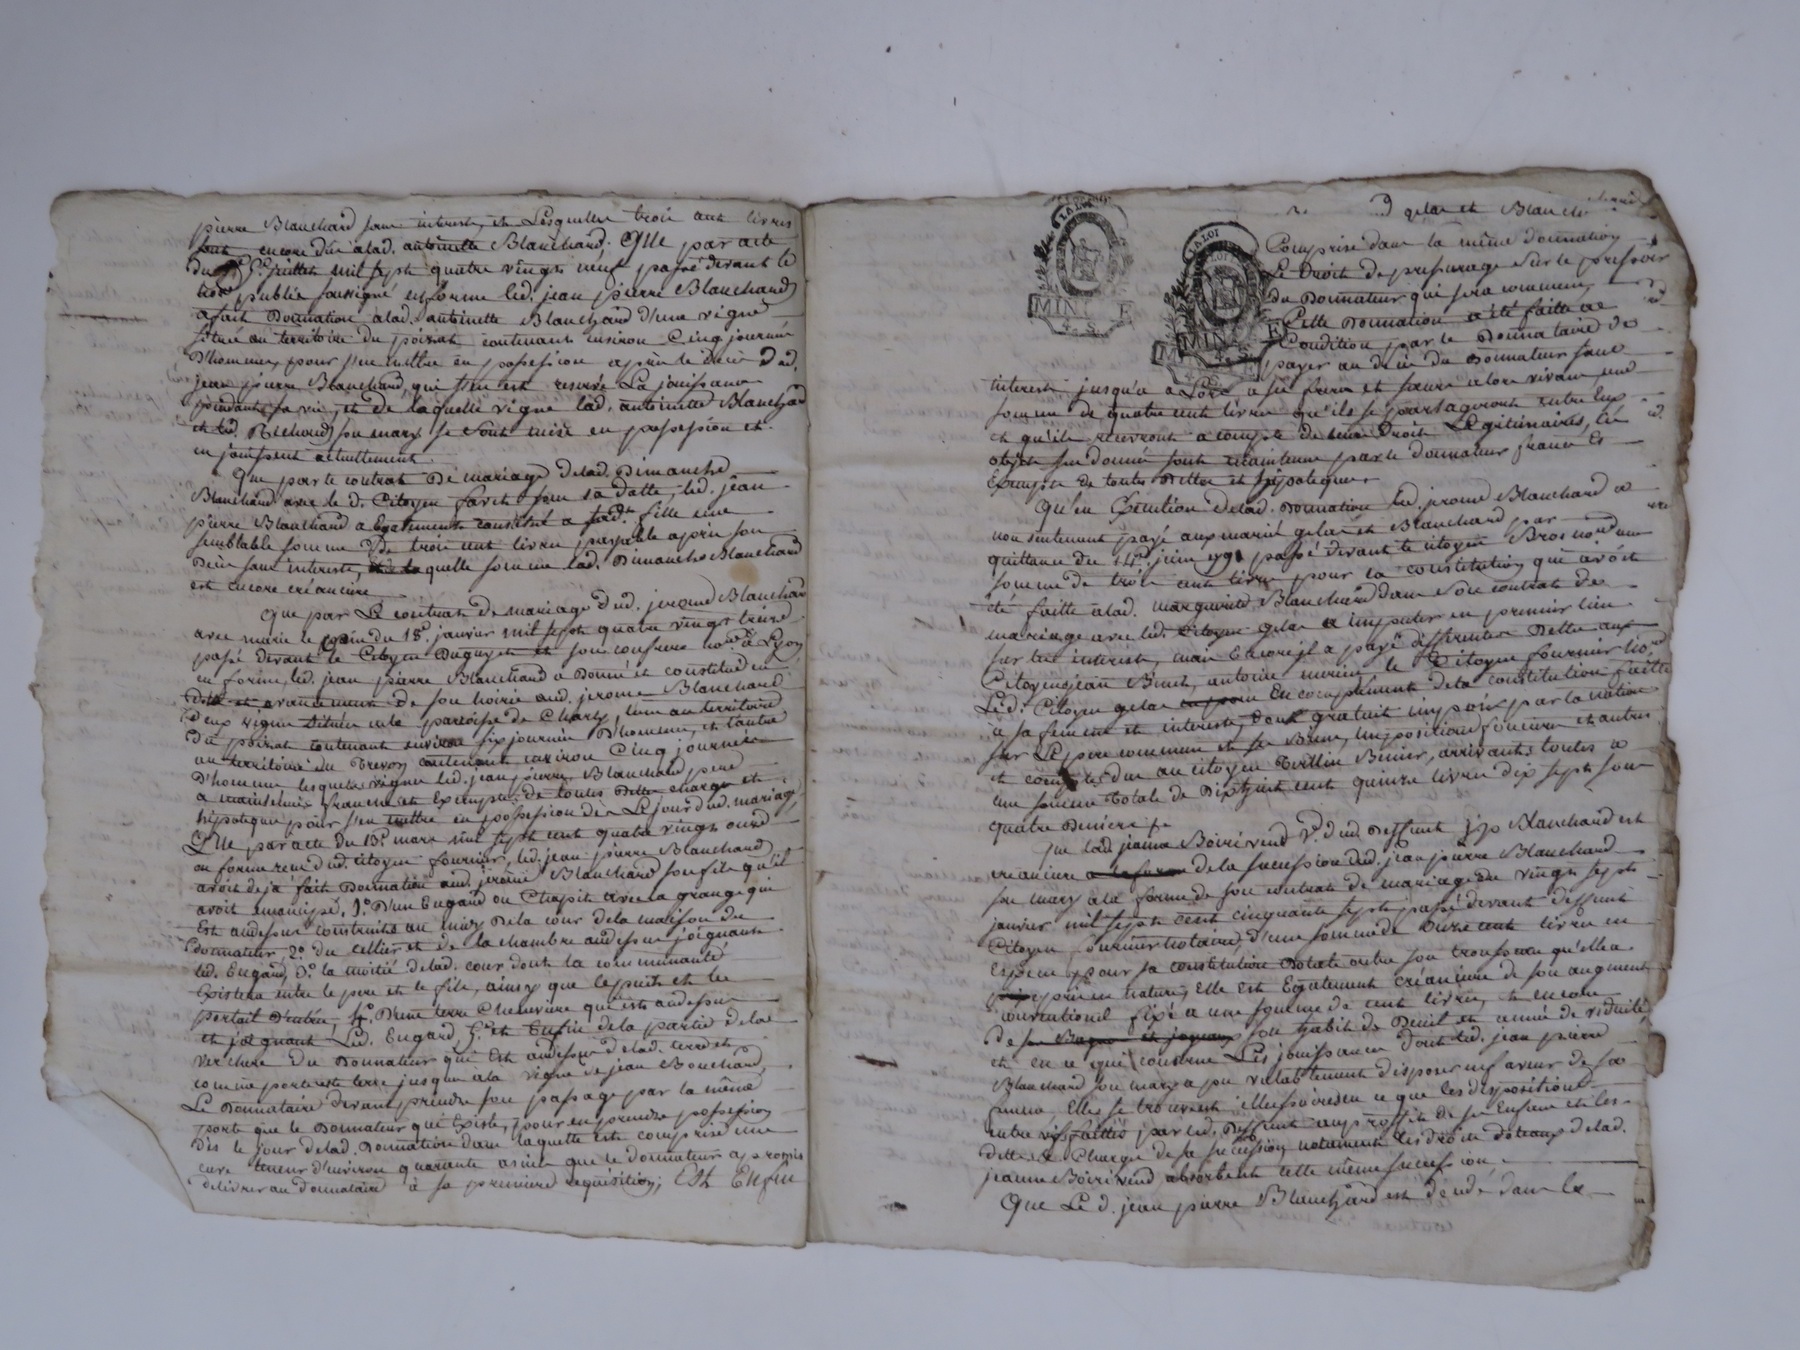 pierre Blanchard sans interests, et Lesquelles trois cent livres
sont encore due alad. antoinette Blanchard; Que par acte
du 5e juillet mil sept quatre vingt neuf passé devant le
notre public soussigné en forme led. jean pierre Blanchard
a fait Donnation alad. antoinette Blanchard d'une vigne
située au territoire du poirat contenant environ Cinq journée
D'hommes, pour s'en mettre en possession après le décès Dud.
jean pierre Blanchard, qui s'en est reservé La jouissance
pendant sa vie, et de laquelle vigne lad. antoinette Blanchard
et led. Richard son mary se sont mise en possession et
en jouissent actuellement
Que par le contrat De mariage delad. Dimanche
Blanchard avec le d. Citoyen favet sous sa datte, led. jean
pierre Blanchard a Egalement constitué a sad.te fille une
semblable somme De trois cent livres payable après son
Décès sans interests, de laquelle somme lad. Dimanche Blanchard
est encore créancière
Que par Le contrat De mariage dud. jerome Blanchard
avec marie le du 18e janvier mil sept quatre vingt treize
passé devant le Citoyen Duguyet et son confrere nore a Lyon
en forme, led. jean pierre Blanchard a Donné et constitué en
Dotte et avancement de son hoirie aud. jerome Blanchard
Deux vignes situées en la paroisse de Charly, l'une au territoire
du poirat contenant environ six journée D'hommes, et l'autre
au territoire du Trevon contenant environ Cinq journée
D'homme lesquelles vignes led. jean pierre Blanchard pere
a maintenües franches et Exemptes de toutes Dettes charges et
hipoteques pour s'en mettre en possession dès Le jour dud. mariage,
Que par acte du 13e mars mil sept cent quatre vingt onze
en forme reçu dud. citoyen fournier, led. jean pierre Blanchard
avoit deja fait Donnation aud. jérome Blanchard son fils qu'il
avoit emancipé, 1o. D'un Engard ou Chapit avec la grange qui
Est audessus construits au midy De la cour de la maison du
Donnateur, 2o. du cellier et de la chambre audessus joignants
led. Engard, 3o. la moitié delad. cour dont la communauté
Existera entre le pere et le fils, ainsy que le puits et le
portail D'entrée, 4o. D'une terre Cheneviere qui est audessus
et joignant Led. Engard, 5o. et Enfin de la partie de la
verchere du Donnateur qui Est audessus delad. terre et
comme porte cette terre jusques a la vigne de jean Bouchard,
Le Donnataire devant prendre son passage par la même
porte que le Donnateur qui Existe, pour en prendre possession
Dès le jour delad. Donnation dans laquelle est comprise une
cuve teneur d'environ quarante anées que le donnateur a promis
delivrer au donnataire à sa premiere requisition; Est Enfin
gelas et Blanch
LA LOI
LA LOI
Comprise dans la même donnation
Le Droit de pressurage sur le pressoir
du Donnateur qui sera commun,
Cette Donnation a été faitte ac
Condition par le Donnataire de
payer au décès du Donnateur sans
interests jusqu'a a Lors a ses freres et soeurs alors vivans, une
somme de quatre cent livres qu'ils se partageront entre Eux
et qu'ils recevront acompte de leurs Droits Légitimaires, les
objets sus donnés sont maintenus par le donnateur francs Et
Exempts de toutes Dettes et hipoteques
Qu'en Execution delad. Donnation led. jerome Blanchard a
non seulement payé aux mariés gelas et Blanchard par
quittance du 14e juin 1791 passé devant le citoyen Bros nore une
somme de trois cent livres pour la constitution qui avoit
été faitte alad. marguerite Blanchard dans son contrat de
mariage avec led. Citoyen gelas a imputer en premier lieu
sur les interests, mais Encore il a payé differentes Dettes aux
Citoyens jean Binet, antoine le Citoyen fournier nore
Led. Citoyen gelas En complement de la constitution faitte
a sa femme et interests, dont gratuit imposé par la nation
sur Le pere commun et ses Biens, impositions foncieres et autres
et compte due au citoyen Trillin Binier, arrivants toutes a
une somme Totale de Dixhuit cent quinze livres dix sept sous
quatre Deniers
que lad. jeanne Boirivend ve. dud. Deffunt j.p. Blanchard est
creanciere de la succession dud. jean pierre Blanchard
son mary ala forme de son contrat de mariage du vingt sept
janvier mil sept cent cinquante sept passé devant deffunt
Citoyen fournier notaire, d'une somme de Onze cent livres en
Especes pour sa constitution Dotale outre son trousseau qu'elle a
repris en nature, elle est Egalement créanciere de son augment
conventionel fixé a une somme de cent livres, et encore
de ses Bagues et joyaux son habit de Deuil et année de viduité,
et en ce qui concerne Les jouissances dont led. jean pierre
Blanchard son mary a pu valablement disposer en faveur de sa
femme, Elles se trouvent illusoires en ce que les dispositions
entre vifs faittes par led. Deffunt au proffit de ses Enfans et les
dettes et Charges de sa succession notament les droits dotaux delad.
jeanne Boirivend absorbent cette même succession,
Que Le d. jean pierre Blanchard est décédé dans Le